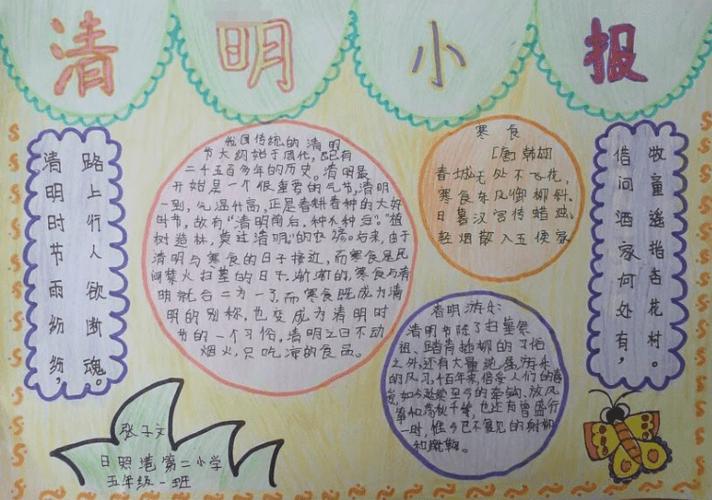 清明小报
清明时节雨纷纷，
路上行人欲断魂。
我国传统的清明
节大约始于周代，已有
二千五百多年的历史。清明最
开始是一个很重要的节气，清明
一到，气温升高，正是春耕春种的大好
时节，故有“清明前后，种瓜种豆”。“植
树造林，莫过清明”的农谚。后来，由于
清明与寒食的日子接近，而寒食是民
间禁火扫墓的日子，渐渐的，寒食与清
明就合二为一了，而寒食既成为清
明的别称，也变成为清明时
节的一个习俗，清明之日不动
烟火，只吃凉的食品。
寒食
[唐]韩翃
春城无处不飞花，
寒食东风御柳斜。
日暮汉宫传蜡烛，
轻烟散入五侯家
借问酒家何处有，
牧童遥指杏花村。
清明游乐
清明节除了扫墓祭
祖、踏青插柳的习俗
之外，还有大量
的风习，千百年来，倍受人们的喜
爱，如今延续至今的牵钩、放风
筝和荡秋千等，也还有曾盛行
一时，惟今已不复见的射柳
和蹴鞠。
张子文
日照港第二小学
五年级一班